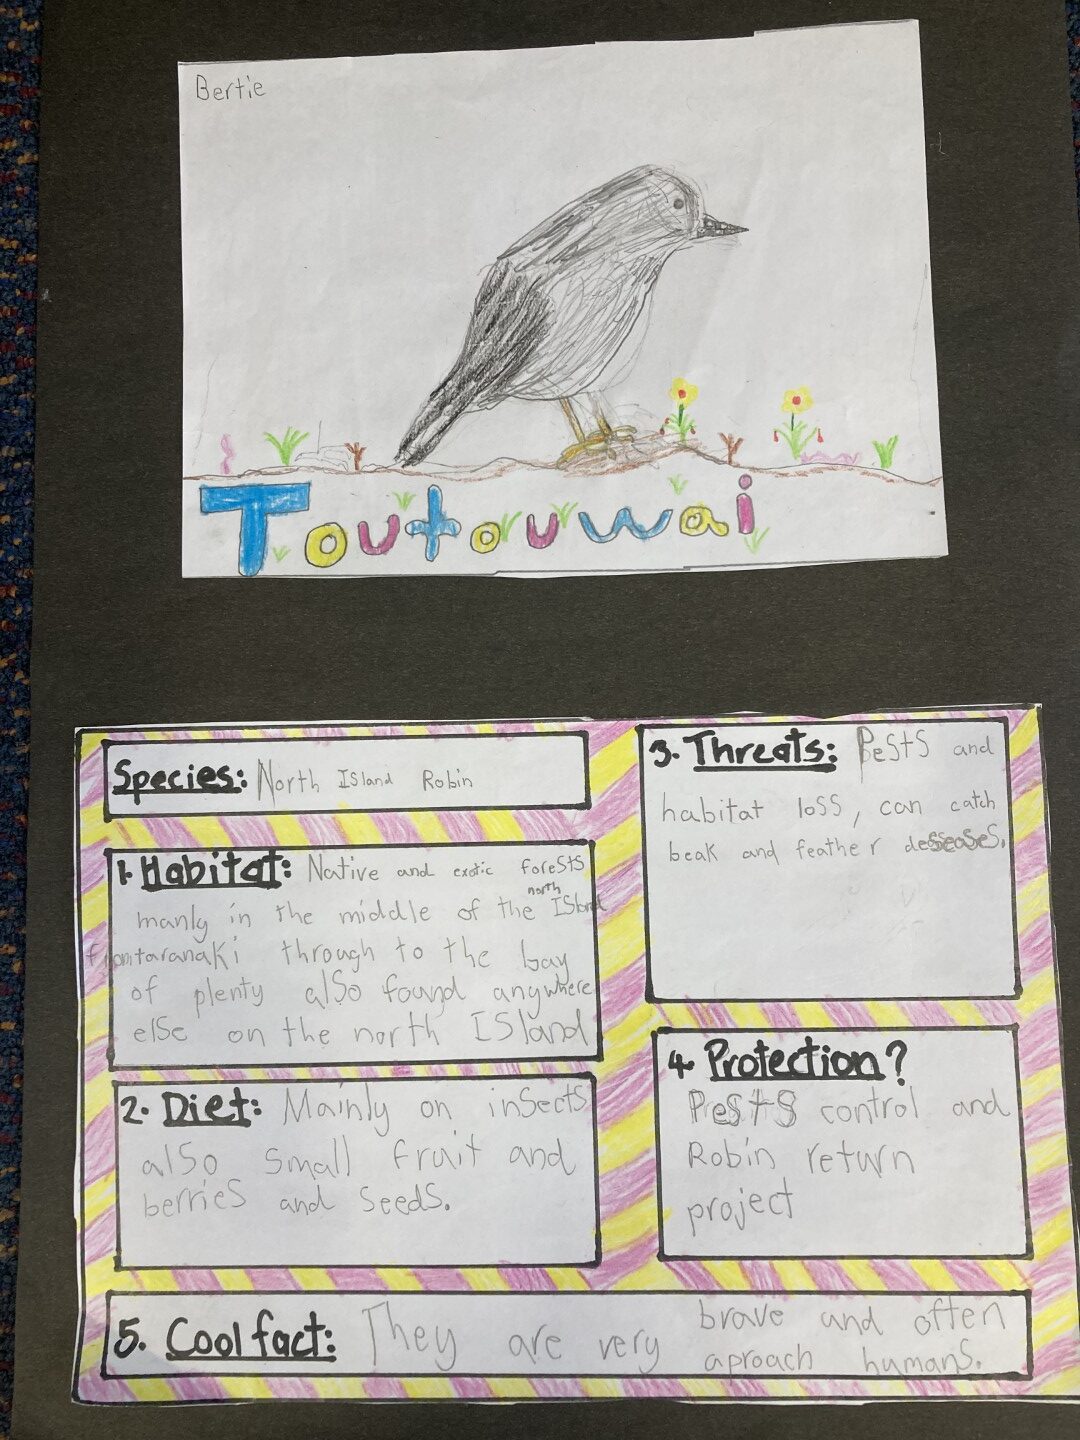 Bertie
Toutouwai
Species: North Island Robin
1. Habitat: Native and exotic forests
manly in the middle of the north Island
from taranaki through to the bay
of plenty also found angwhere
else on the north Island
2. Diet: Mainly on insects
also small fruit and
berries and seeds.
3. Threats: Pests and
habitat loss, can catch
beak and feather desseases.
4. Protection?
Pests control and
Robin return
project
5. Cool fact: They are very brave and often
aproach humans.